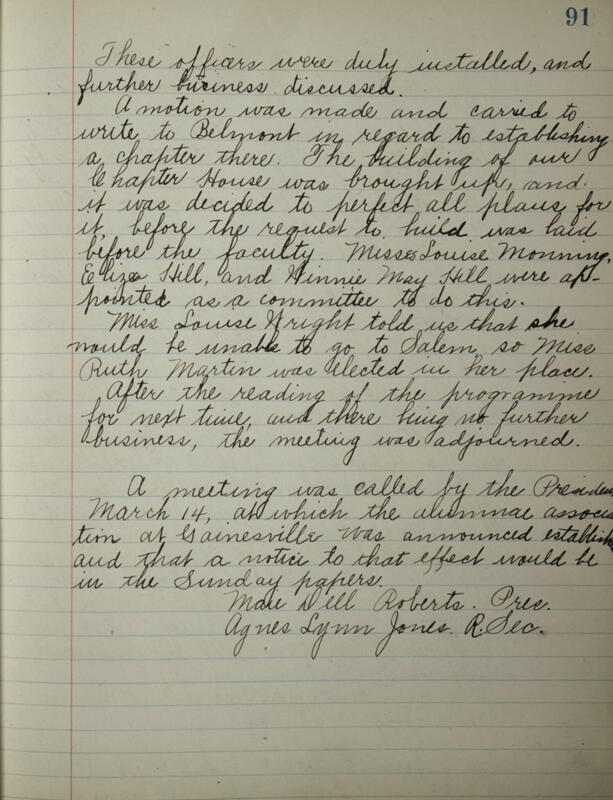 91
These officers were duly installed, and
further business discussed.
A motion was made and carried to
write to Belmont in regard to establishing
a chapter there. The building of our
Chapter House was brought up, and
it was decided to perfect all plans for
it, before the request to build was laid
before the faculty. Misses Louise Monning,
Eliza Hill, and Winnie May Hill were ap-
pointed as a committee to do this.
Miss Louise Wright told us that she
would be unable to go to Salem, so Miss
Ruth Martin was elected in her place.
After the reading of the programme
for next time, and there being no further
business, the meeting was adjourned.
A meeting was called by the President
March 14, at which the alumnae associa
tion at Gainesville was announced establish
and that a notice to that effect would be
in the Sunday papers.
Mae Dell Roberts. Pres.
Agnes Lynn Jones. R. Sec.